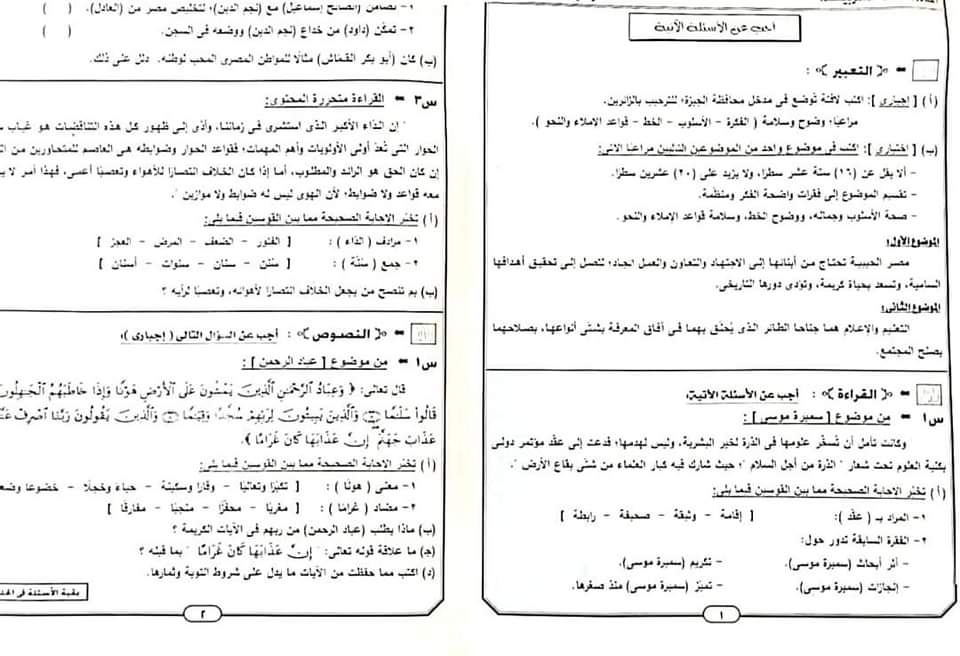 أجب عن الأسئلة الآتية
التعبير :
(أ) [ إجبارى ]: اكتب لافتة توضع فى مدخل محافظة الجيزة؛ للترحيب بالزائرين.
مراعيًا: وضوح وسلامة ( الفكرة - الأسلوب - الخط - قواعد الإملاء والنحو ).
(ب) [ اختيارى ]: اكتب فى موضوع واحد من الموضوعين التاليين مراعيًا الآتى:
- ألا يقل عن (١٦) ستة عشر سطرًا، ولا يزيد على (٢٠) عشرين سطرًا.
- تقسيم الموضوع إلى فقرات واضحة الفكر ومنظمة.
- صحة الأسلوب وجماله، ووضوح الخط، وسلامة قواعد الإملاء والنحو.
الموضوع الأول:
مصر الحبيبة تحتاج من أبنائها إلى الاجتهاد والتعاون والعمل الجاد؛ لتصل إلى تحقيق أهدافها
السامية، وتسعد بحياة كريمة، وتؤدى دورها التاريخى.
الموضوع الثانى:
التعليم والإعلام هما جناحا الطائر الذى يُحلق بهما فى آفاق المعرفة بشتى أنواعها، بصلاحهما
يصلح المجتمع.
القراءة : أجب عن الأسئلة الآتية:
س١ - من موضوع [ سميرة موسى ] :
وكانت تأمل أن تُسخَّر علومها فى الذرة لخير البشرية، وليس لهدمها؛ فدعت إلى عقد مؤتمر دولى
بكلية العلوم تحت شعار " الذرة من أجل السلام "؛ حيث شارك فيه كبار العلماء من شتى بقاع الأرض ".
(أ) تخيَّر الإجابة الصحيحة مما بين القوسين فيما يلى:
١- المراد بـ ( عقد ): [ إقامة - وثيقة - صحيفة - رابطة ]
٢- الفقرة السابقة تدور حول:
- أثر أبحاث (سميرة موسى). - تكريم (سميرة موسى).
- إنجازات (سميرة موسى). - تميّز (سميرة موسى) منذ صغرها.
١
١- تضامن (الصالح إسماعيل) مع (نجم الدين)؛ لتخليص مصر من (العادل). ( )
٢- تمكّن (داود) من خداع (نجم الدين) ووضعه فى السجن. ( )
(ب) كان (أبو بكر القماش) مثالًا للمواطن المصرى المحب لوطنه. دلل على ذلك.
س٣ - القراءة متحررة المحتوى:
" إن الداء الأكبر الذى استشرى فى زماننا، وأدى إلى ظهور كل هذه التناقضات هو غياب
الحوار التى تُعدّ أولى الأولويات وأهم المهمات؛ فقواعد الحوار وضوابطه هى العاصم للمتحاورين من
إن كان الحق هو الرائد والمطلوب، أما إذا كان الخلاف انتصارًا للأهواء وتعصبًا أعمى، فهذا أمر لا
معه قواعد ولا ضوابط؛ لأن الهوى ليس له ضوابط ولا موازين ".
(أ) تخيَّر الإجابة الصحيحة مما بين القوسين فيما يلى:
١- مرادف ( الداء ) : [ الفتور - الضعف - المرض - العجز ]
٢- جمع ( سُنَّة ) : [ سُنن - سنان - سنوات - أسنان ]
(ب) بم تنصح من يجعل الخلاف انتصارًا لأهوائه، وتعصبًا لرأيه ؟
النصوص : أجب عن السؤال التالى ( إجبارى ):
س١ - من موضوع [ عباد الرحمن ] :
قال تعالى: ﴿ وَعِبَادُ الرَّحْمَٰنِ الَّذِينَ يَمْشُونَ عَلَى الْأَرْضِ هَوْنًا وَإِذَا خَاطَبَهُمُ الْجَاهِلُونَ
قَالُوا سَلَامًا ۝ وَالَّذِينَ يَبِيتُونَ لِرَبِّهِمْ سُجَّدًا وَقِيَامًا ۝ وَالَّذِينَ يَقُولُونَ رَبَّنَا اصْرِفْ
عَذَابَ جَهَنَّمَ إِنَّ عَذَابَهَا كَانَ غَرَامًا ﴾.
(أ) تخيَّر الإجابة الصحيحة مما بين القوسين فيما يلى:
١- معنى ( هونًا ) : [ تكبرًا وتعاليًا - وقارًا وسكينة - حياءً وخجلًا - خضوعًا
٢- مضاد ( غرامًا ) : [ مغريًا - محفزًا - منجيًا - مفارقًا ]
(ب) ماذا يطلب (عباد الرحمن) من ربهم فى الآيات الكريمة ؟
(ج) ما علاقة قوله تعالى: " إِنَّ عَذَابَهَا كَانَ غَرَامًا " بما قبله ؟
(د) اكتب مما حفظت من الآيات ما يدل على شروط التوبة وثمارها.
بقية الأسئلة فى
٢